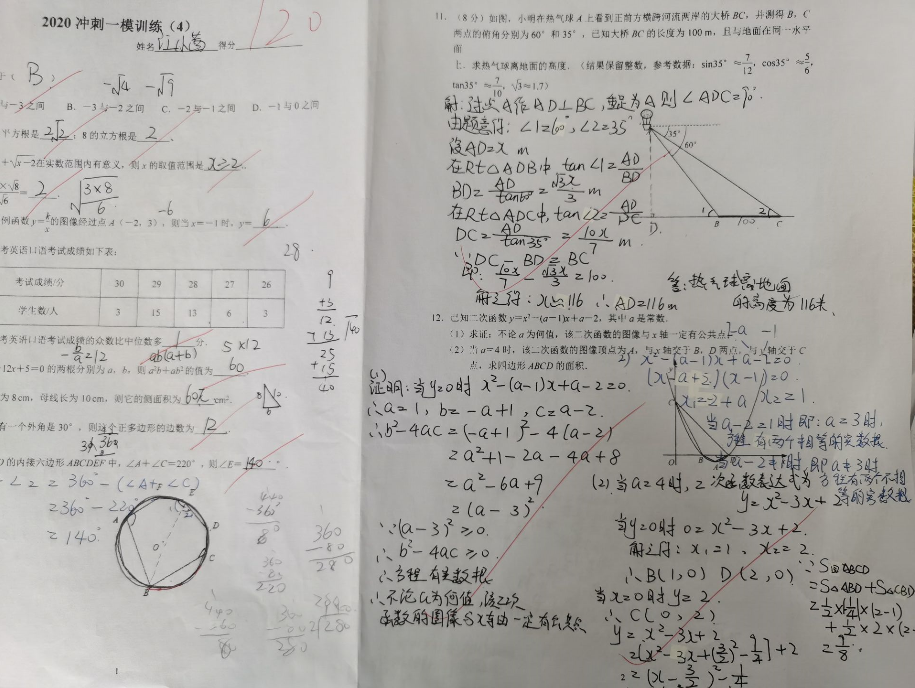 2020 冲刺一模训练（4）
120
姓名 得分
B
-√4 -√9
与－3 之间 B. －3 与－2 之间 C. －2 与－1 之间 D. －1 与 0 之间
平方根是 2√2 ；8 的立方根是 2 .
+√x－2在实数范围内有意义，则 x 的取值范围是 x≥2 .
×√8
√6 = 2 . √3×8/6
-6
例函数 y=k/x的图像经过点 A（－2，3），则当 x=－1 时，y= 6 .
考英语口语考试成绩如下表： 28.
考试成绩/分 30 29 28 27 26
学生数/人 3 15 13 6 3
9
+3
12
+13
25
+15
40
考英语口语考试成绩的众数比中位数多 1 分.
-b/a=12 ab(a+b) 5×12
12x+5=0 的两根分别为 a、b，则 a²b+ab²的值为 60
为 8cm，母线长为 10cm，则它的侧面积为 60π cm².
有一个外角是 30°，则这个正多边形的边数为 12 .
O 的内接六边形 ABCDEF 中，∠A+∠C=220°，则∠E= 140° .
∠2=360°-(∠A+∠C)
=360°-220°
=140°
A B C D O
360
-80
280
1
11.（8分）如图，小明在热气球 A 上看到正前方横跨河流两岸的大桥 BC，并测得 B，C
两点的俯角分别为 60°和 35°，已知大桥 BC 的长度为 100 m，且与地面在同一水平
面
上．求热气球离地面的高度.（结果保留整数，参考数据：sin35°≈7/12，cos35°≈5/6，
tan35°≈7/10，√3≈1.7）
解：过点A作AD⊥BC，垂足为A 则∠ADC=90°.
由题意得：∠1=60°，∠2=35°
设AD=x m
在Rt△ADB中 tan∠1=AD/BD
BD=AD/tan60°=√3x/3 m
在Rt△ADC中，tan∠2=AD/DC
DC=AD/tan35°=10x/7 m.
∵DC-BD=BC
即：10x/7-√3x/3=100.
解之得：x≈116 ∴AD=116m
35°
60°
D. 1 B 100 2 C
答：热气球离地面
的高度为116米、
12. 已知二次函数 y=x²－(a－1)x+a－2，其中 a 是常数.
（1）求证：不论 a 为何值，该二次函数的图像与 x 轴一定有公共点；
（2）当 a=4 时，该二次函数的图像顶点为 A，与 x 轴交于 B、D 两点，与 y 轴交于 C
点，求四边形 ABCD 的面积.
(1)
证明：当y=0时 x²-(a-1)x+a-2=0.
∴a=1，b=-a+1，c=a-2.
∴b²-4ac=(-a+1)²-4(a-2)
=a²+1-2a-4a+8
=a²-6a+9
=(a-3)²
∵(a-3)²≥0.
∴b²-4ac≥0.
∴方程有实数根
∴不论a为何值，该二次
函数的图像与x轴一定有公共点
-a -1
2) x²-(a-1)x+a-2=0.
(x-a+2)(x-1)=0
x₁=2+a x₂=1.
当a-2=1时 即：a=3时，
方程有两个相等的实数根
当a-2≠1时，即a≠3时
方程有两个不相
等的实数根
0 B D
(2) 当a=4时，二次函数表达式为
y=x²-3x+2
当y=0时 0=x²-3x+2.
解之得：x₁=1、x₂=2.
∴B(1,0) D(2,0)
当x=0时 y=2.
∴C(0,2)
y=x²-3x+2
=[x²-3x+(3/2)²-9/4]+2
=(x-3/2)²-1/4
∵S四ABCD
=S△ABD+S△CBD
=1/2×|1/4|×(2-1)
+1/2×2×(2-
=9/8.